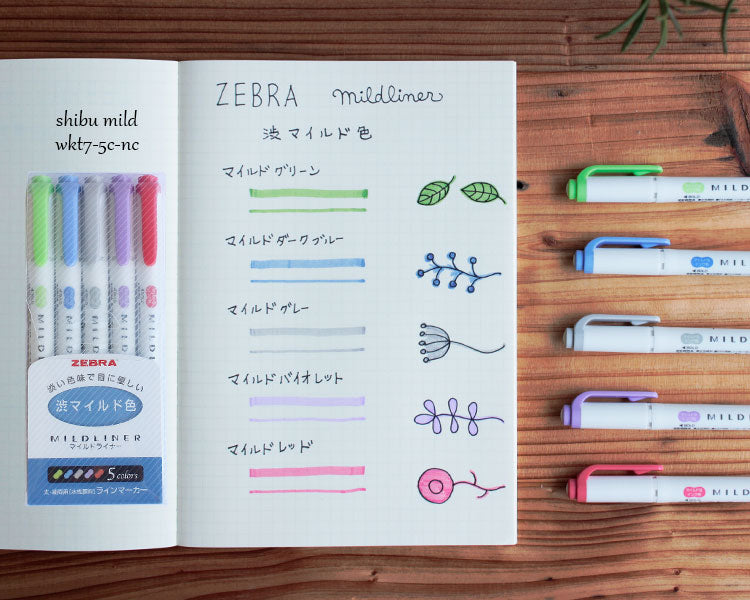 shibu mild
wkt7-5c-nc
ZEBRA
淡い色味で目に優しい
渋マイルド色
MILDLINER
マイルドライナー
5 colors
ラインマーカー
ZEBRA mildliner
渋マイルド色
マイルドグリーン
マイルドダークブルー
マイルドグレー
マイルドバイオレット
マイルドレッド
MILD
MILD
MILD
MILD
MILD